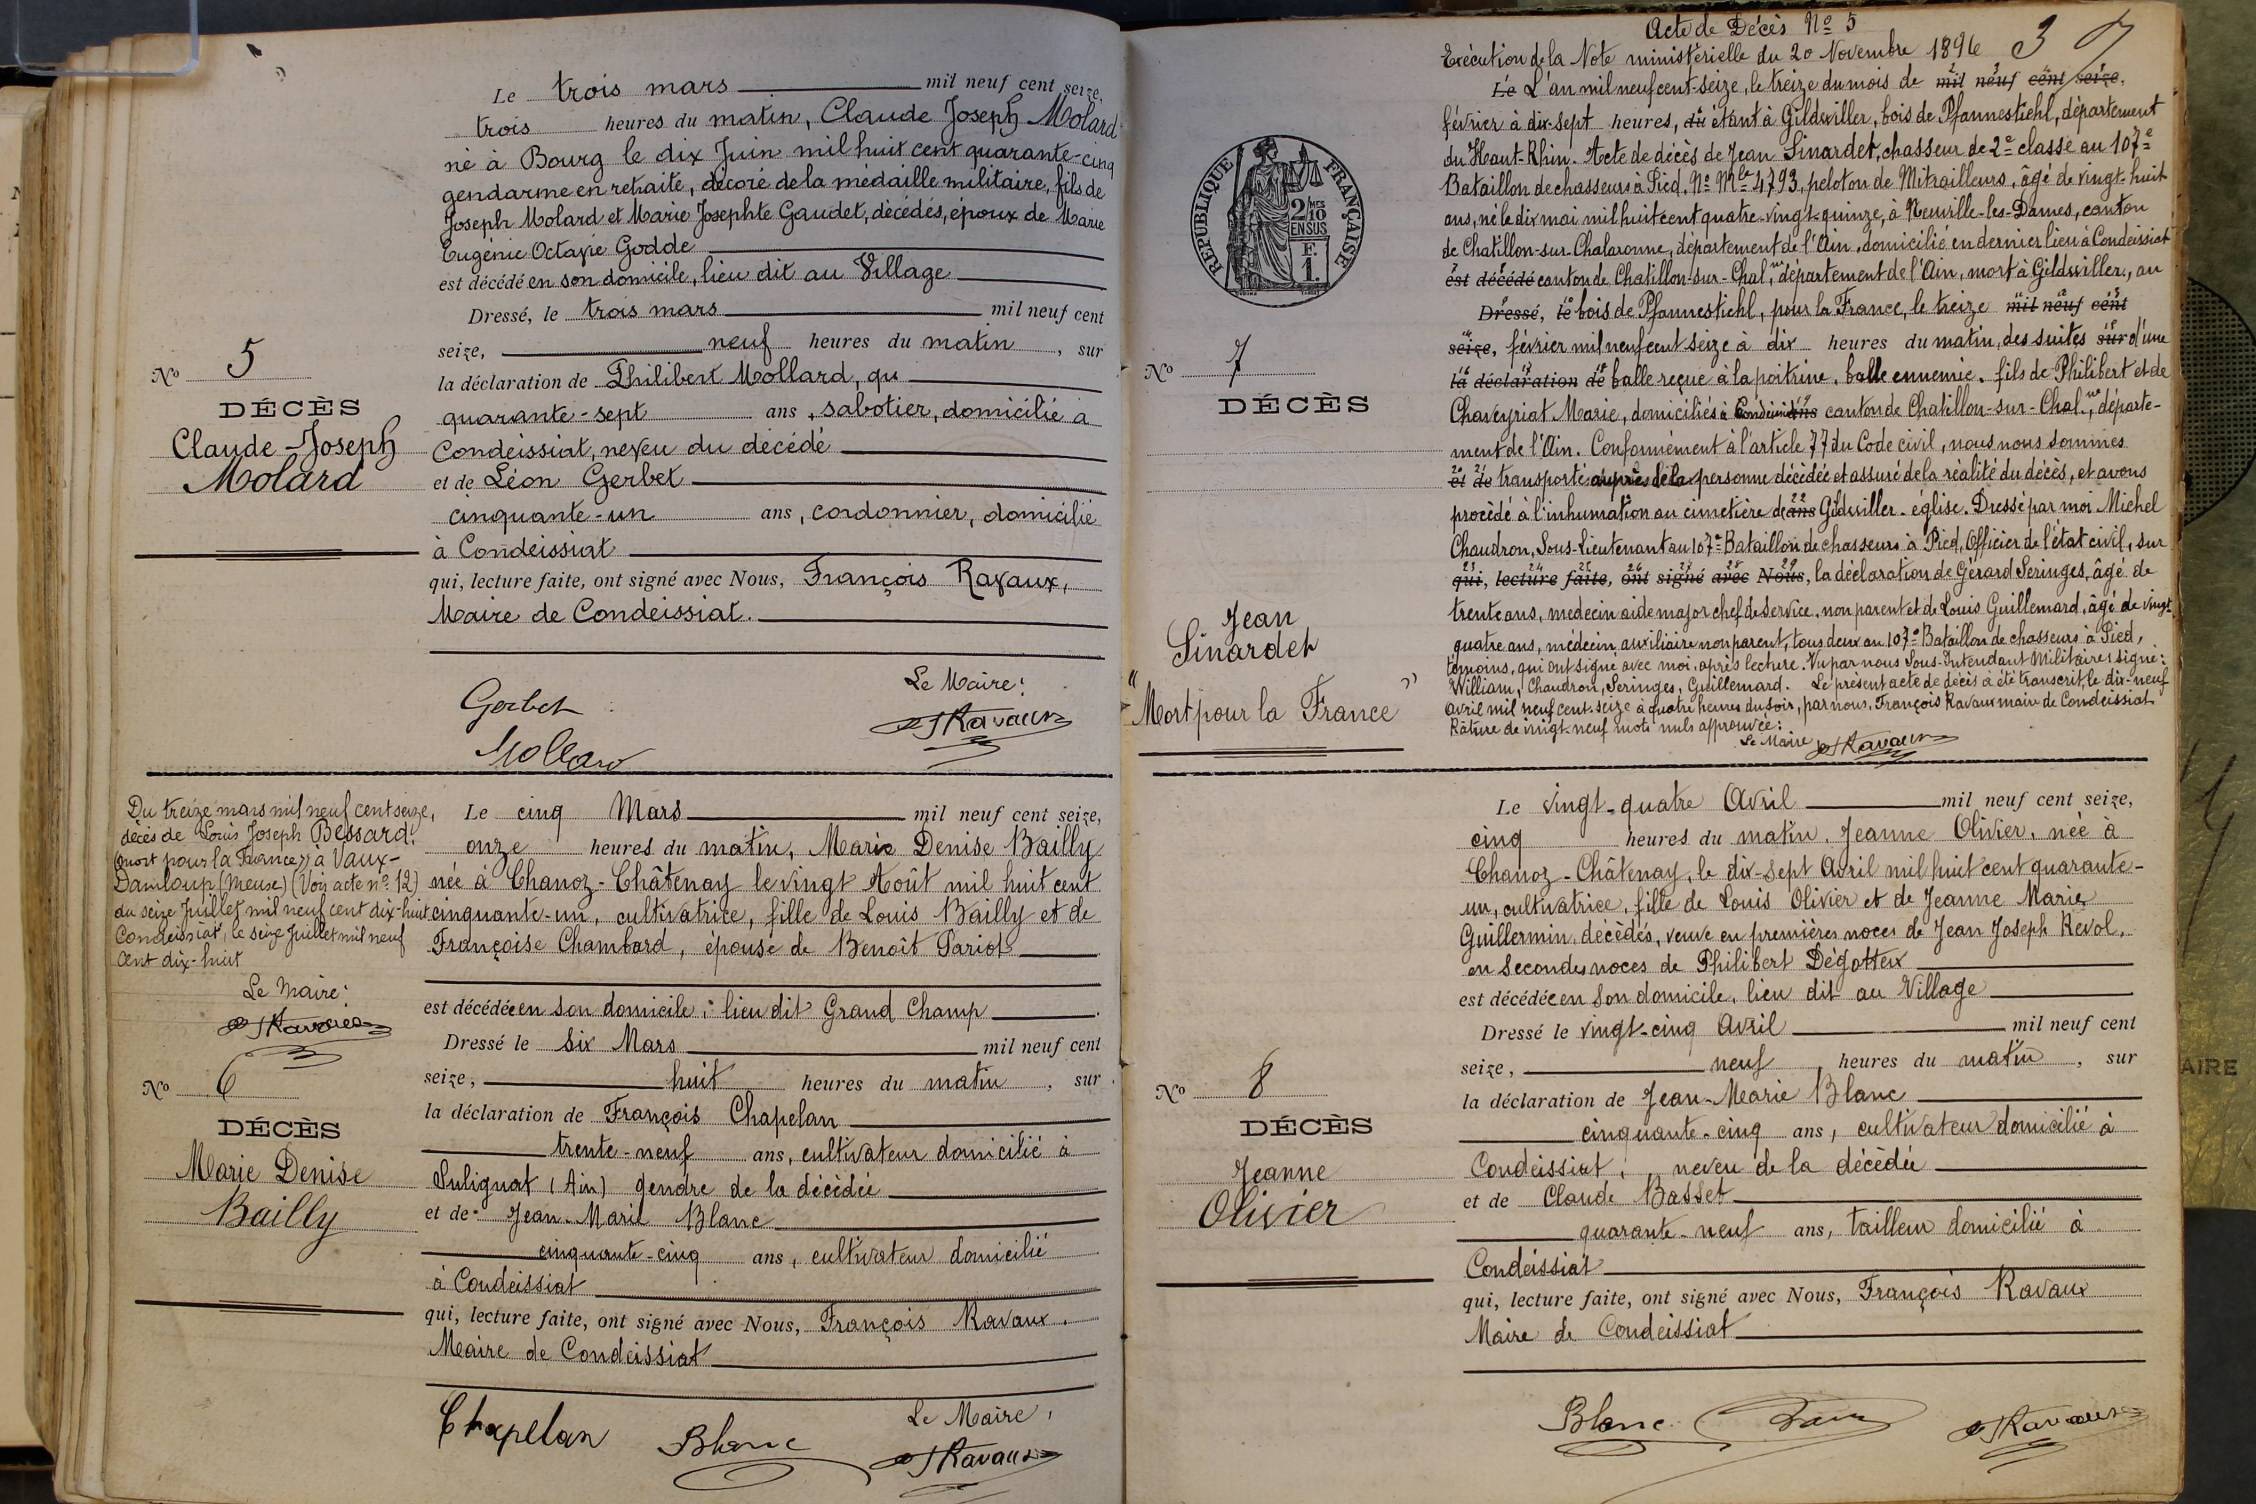 Le trois mars mil neuf cent seize,
trois heures du matin, Claude Joseph Molard
né à Bourg le dix Juin mil huit cent quarante-cinq
gendarme en retraite, décoré de la médaille militaire, fils de
Joseph Molard et Marie Josephte Gaudet, décédés, époux de Marie
Eugénie Octavie Godde
est décédé en son domicile, lieu dit au Village
Dressé, le trois mars mil neuf cent
seize, neuf heures du matin, sur
la déclaration de Philibert Mollard, qu
quarante-sept ans, sabotier, domicilié à
Condeissiat, neveu du décédé
et de Léon Gerbet
cinquante-un ans, cordonnier, domicilié
à Condeissiat
qui, lecture faite, ont signé avec Nous, François Ravaux,
Maire de Condeissiat.
Le Maire:
Gerbet
Ravaux
Mollard
No 5
DÉCÈS
Claude-Joseph
Molard
Du treize mars mil neuf cent seize,
décès de Louis Joseph Bessard.
(mort pour la France) à Vaux-
Damloup (Meuse) (Voir acte nº 12)
du seize Juillet mil neuf cent dix-huit
Condeissiat, le seize Juillet mil neuf
cent dix-huit
Le Maire:
Ravaux
No 6
DÉCÈS
Marie Denise
Bailly
Le cinq Mars mil neuf cent seize,
onze heures du matin, Marie Denise Bailly
née à Chanoz-Châtenay le vingt Août mil huit cent
cinquante-un, cultivatrice, fille de Louis Bailly et de
Françoise Chambard, épouse de Benoît Pariot
est décédée en son domicile; lieu dit Grand Champ
Dressé le six Mars mil neuf cent
seize, huit heures du matin, sur
la déclaration de François Chapelan
trente-neuf ans, cultivateur domicilié à
Sulignat (Ain) gendre de la décédée
et de Jean-Marie Blanc
cinquante-cinq ans, cultivateur domicilié
à Condeissiat
qui, lecture faite, ont signé avec Nous, François Ravaux.
Maire de Condeissiat
Le Maire,
Chapelan Blanc Ravaux
Acte de Décès Nº 5
Exécution de la Note ministérielle du 20 Novembre 1896 3
Le L'an mil neuf cent-seize, le treize du mois de mil neuf cent seize,
février à dix-sept heures, du étant à Gildwiller, bois de Pfannestiehl, département
du Haut-Rhin. Acte de décès de Jean Sinardet, chasseur de 2e classe au 107e
Bataillon de chasseurs à Pied, Nº Mle 4793, peloton de Mitrailleurs, âgé de vingt-huit
ans, né le dix mai mil huit cent quatre-vingt-quinze, à Neuville-les-Dames, canton
de Chatillon-sur-Chalaronne, département de l'Ain, domicilié en dernier lieu à Condeissiat
est décédé canton de Chatillon-sur-Chal.ne, département de l'Ain, mort à Gildwiller, au
Dressé, le bois de Pfannestiehl, pour la France, le treize mil neuf cent
seize, février mil neuf cent seize à dix heures du matin, des suites sur d'une
la déclaration de balle reçue à la poitrine, balle ennemie. fils de Philibert et de
Chaveyriat Marie, domiciliés à Condeissiat ans canton de Chatillon-sur-Chal.ne, départe-
ment de l'Ain. Conformément à l'article 77 du Code civil, nous nous sommes
et de transporté auprès de la personne décédée et assuré de la réalité du décès, et avons
procédé à l'inhumation au cimetière de ans Gildwiller-église. Dressé par moi Michel
Chaudron, Sous-Lieutenant au 107e Bataillon de chasseurs à Pied, Officier de l'état civil, sur
qui, lecture faite, ont signé avec Nous, la déclaration de Gérard Seringes, âgé de
trente ans, médecin aide major chef de service, non parent et de Louis Guillemard, âgé de vingt
quatre ans, médecin auxiliaire non parent, tous deux au 107e Bataillon de chasseurs à Pied,
témoins, qui ont signé avec moi après lecture. Vu par nous Sous-Intendant Militaire; signé:
William, Chaudron, Seringes, Guillemard. Le présent acte de décès a été transcrit, le dix-neuf
avril mil neuf cent-seize à quatre heures du soir, par nous, François Ravaux maire de Condeissiat
Râture de vingt-neuf mots nuls approuvée:
Le Maire Ravaux
RÉPUBLIQUE FRANÇAISE
2/10 EN SUS
F. 1.
No 7
DÉCÈS
Jean
Sinardet
"Mort pour la France"
Le vingt-quatre Avril mil neuf cent seize,
cinq heures du matin, Jeanne Olivier, née à
Chanoz-Châtenay, le dix-sept Avril mil huit cent quarante-
un, cultivatrice, fille de Louis Olivier et de Jeanne Marie
Guillermin, décédés, veuve en premières noces de Jean Joseph Revol,
en secondes noces de Philibert Dégotteux
est décédée en son domicile, lieu dit au Village
Dressé le vingt-cinq Avril mil neuf cent
seize, neuf heures du matin, sur
la déclaration de Jean-Marie Blanc
cinquante-cinq ans, cultivateur domicilié à
Condeissiat, neveu de la décédée
et de Claude Basset
quarante-neuf ans, tailleur domicilié à
Condeissiat
qui, lecture faite, ont signé avec Nous, François Ravaux
Maire de Condeissiat
Blanc Ravaux
No 8
DÉCÈS
Jeanne
Olivier
AIRE